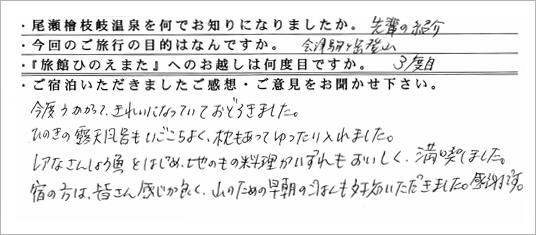 ・尾瀬檜枝岐温泉を何でお知りになりましたか。 先輩の紹介
・今回のご旅行の目的はなんですか。 会津駒ヶ岳登山
・『旅館ひのえまた』へのお越しは何度目ですか。 3度目
・ご宿泊いただきましたご感想・ご意見をお聞かせ下さい。
今度うかがって、きれいになっていておどろきました。
ひのきの露天風呂もいごこちよく、枕もあってゆったり入れました。
レアなさんしょう魚をはじめ、地のもの料理がいずれもおいしく、満喫しました。
宿の方は、皆さん感じが良く、山のための早朝のごはんも対応いただきました。感謝です。